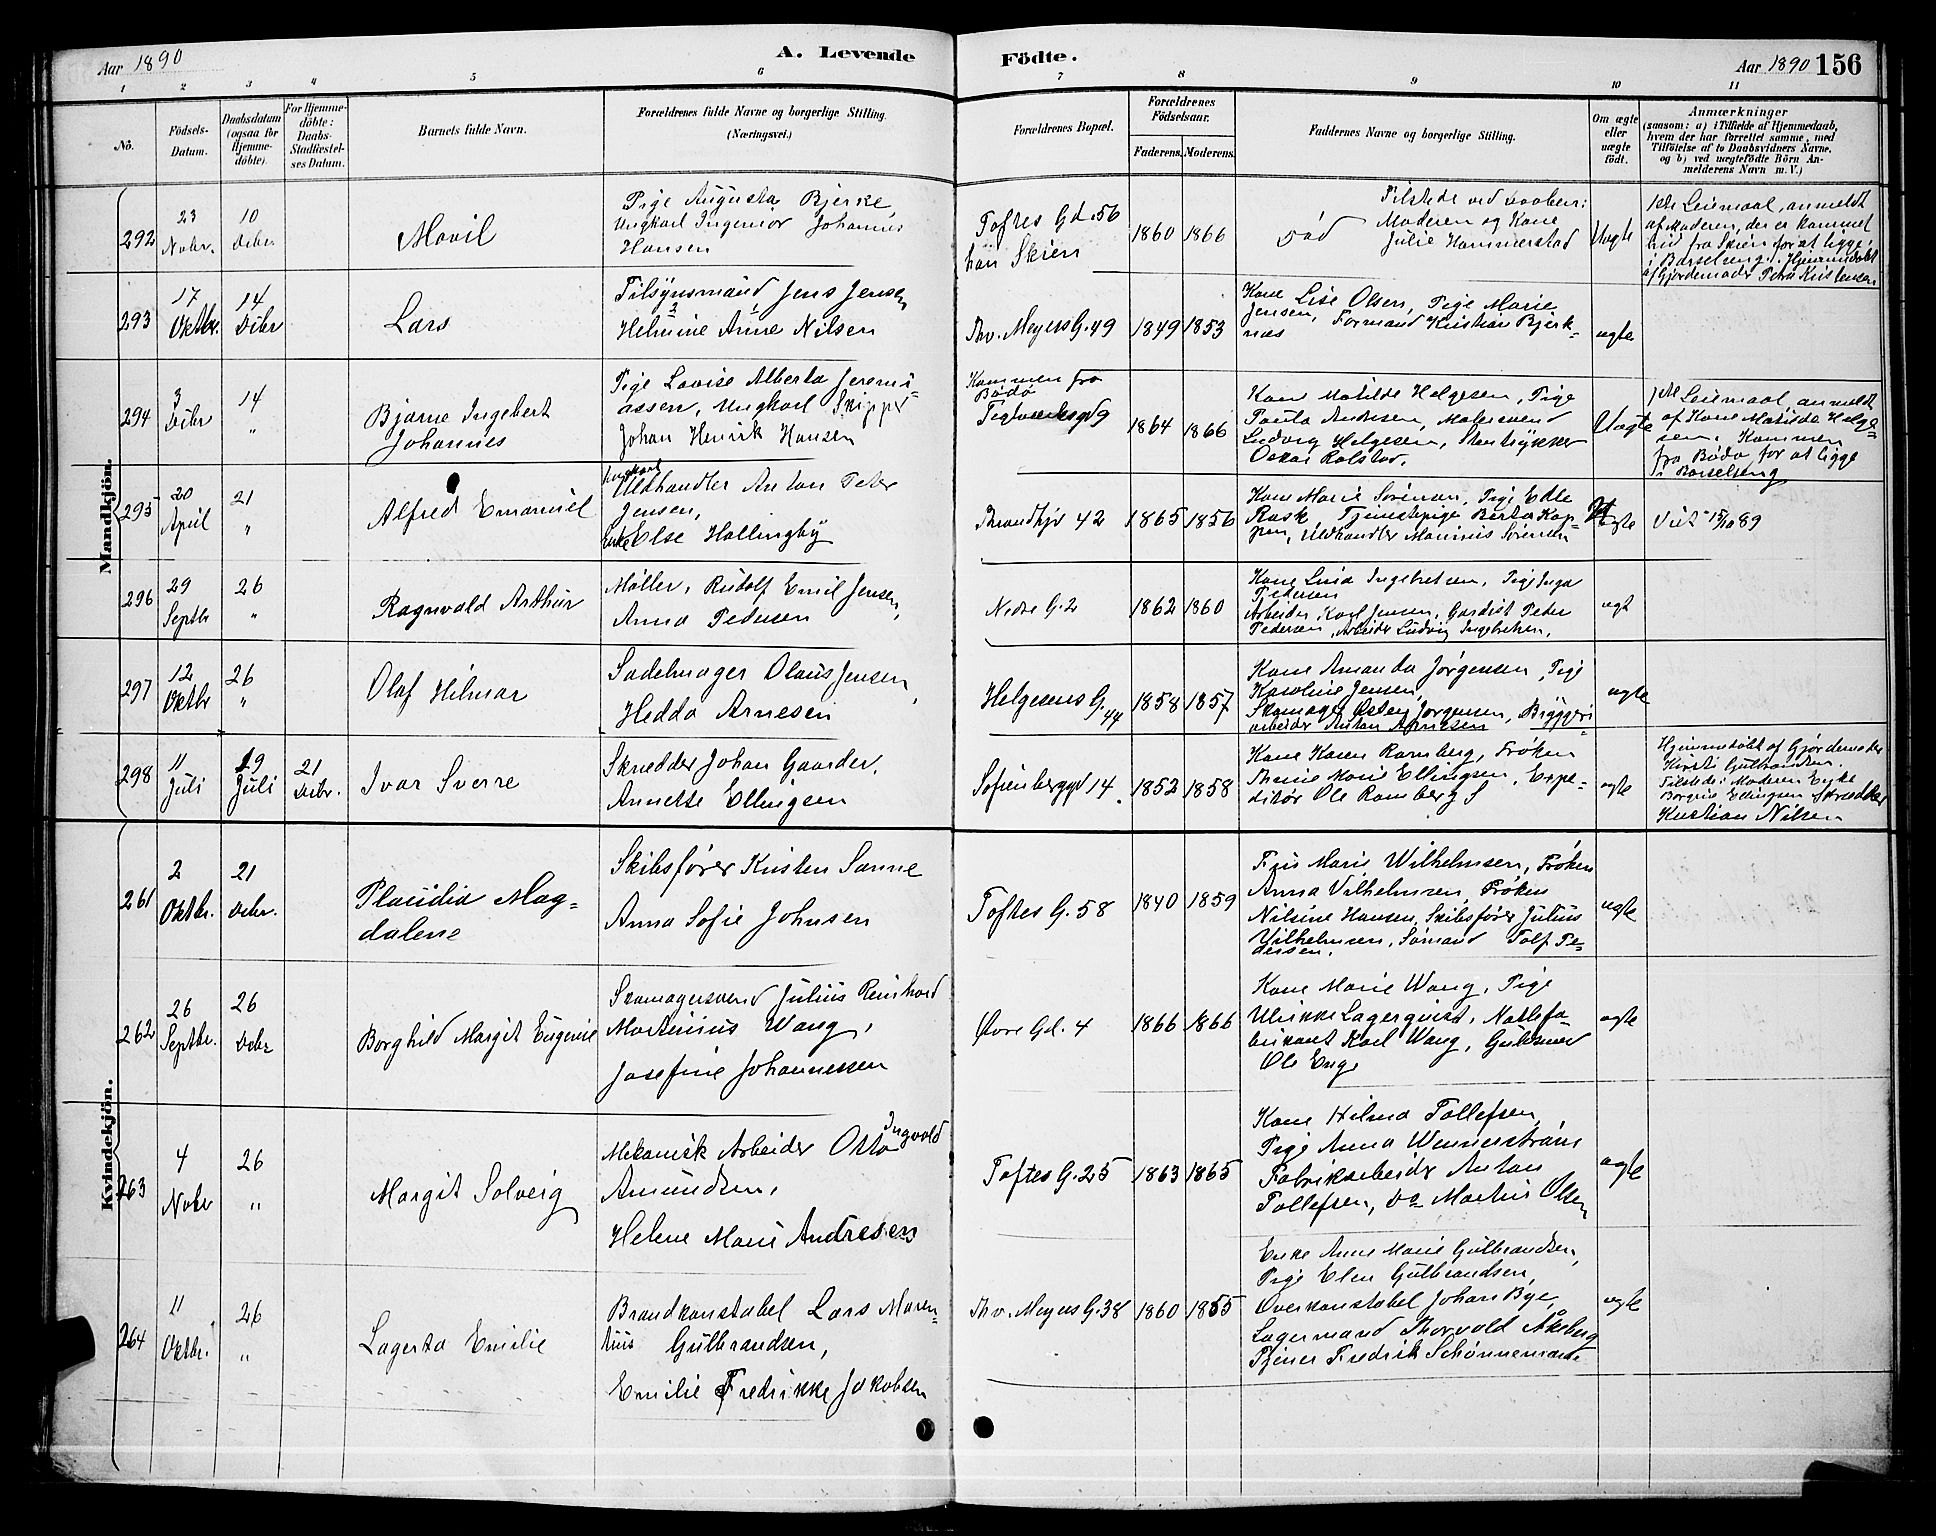 Aar 1890
A. Levende
Födte.
Aar 1890 156
1 2 3 4 5 6 7 8 9 10 11
No.
Födsels-
Datum.
Daabsdatum
(ogsaa for
Hjemme-
döbte).
For Hjemme-
döbte:
Daabs-
Stadfæstel-
ses Datum.
Barnets fulde Navn.
Forældrenes fulde Navne og borgerlige Stilling.
(Næringsvei.)
Forældrenes Bopæl.
Forældrenes
Födselsaar.
Faderens. Moderens.
Faddernes Navne og borgerlige Stilling.
Om ægte
eller
uægte
födt.
Anmærkninger
(saasom: a) i Tilfælde af Hjemmedaab,
hvem der har forrettet samme, med
Tilföielse af to Daabsvidners Navne,
og b) ved uægtefödte Börn An-
melderens Navn m. V.)
Mandkjön.
292
23
Novbr.
10
Decbr
Movil
Pige Augusta Bjerke
Ungkarl Ingeniør Johannes
Hansen
Toftes Gd. 56
han Skien
1860 1866
død
Tilstede ved Daaben:
Moderen og Kone
Julie Hammerstad
Uægte
1ste Leiemaal, anmeldt
af Moderen, der er kommet
hid fra Skien for at ligge
i Barselseng. Hjemmedøbt
af Gjordemoder Petra Kristensen
293
17
Oktbr.
14
Decbr
Lars
Tilsynsmand Jens Jensen
Helmine Anne Nilsen
Thv. Meyers G. 49
1849 1853
Kone Lise Olsen, Pige Marie
Jensen, Formand Kristian Bjerk-
næs
ægte
294
3
Decbr
14
"
Bjarne Ingebert
Johannes
Pige Lovise Alberta Jeremi-
assen, Ungkarl Skipper
Johan Henrik Hansen
Kommen fra
Bodø
Teglverksgd 9
1864 1866
Kone Matilde Helgesen, Pige
Paula Andresen, Malersvend
Ludvig Helgesen, Stentrykker
Oskar Rolstad.
Uægte
1ste Leiemaal anmeldt
af Kone Matilde Helge-
sen. Kommen
fra Bodø for at ligge
i Barselseng
295
20
April
21
"
Alfred Emanuel
Ungkarl
Vedhandler Anton Peter
Jensen,
Enke Else Hallingby
Throndhjv 42
1865 1856
Kone Marie Sörensen, Pige Edle
Rask Tjenestepige Berta Kop-
pen, Vedhandler Marinus Sörensen
Uægte
Viet 15/10 89
296
29
Septbr
26
"
Ragnvald Arthur
Møller, Rudolf Emil Jensen,
Anna Pedersen
Nedre G. 2
1862 1860
Kone Lina Ingebretsen, Pige Inga
Pedersen
Arbeider Karl Jensen, Gardist Peter
Pedersen, Arbeider Ludvig Ingebretsen.
ægt
297
12
Oktbr
26
"
Olaf Hilmar
Sadelmager Olaus Jensen,
Hedda Arnesen
Helgesens G. 44
1858 1857
Kone Amanda Jørgensen, Pige
Karoline Jensen,
Skomager Østen Jørgensen, Bryggeri
arbeider Anton Arnesen
ægte
298
11
Juli
19
Juli
21
Decbr.
Ivar Sverre
Skrædder Johan Gaarder,
Annette Ellingsen
Sofienberggd 14.
1852 1858
Kone Karen Ramberg, Frøken
Thrine Marie Ellingsen, Expe-
ditør Ole Ramberg S
ægte
Hjemmedøbt af Gjordemoder
Kirsti Gulbrandsen.
Tilstede: Moderen Enke
Borgine Ellingsen Skrædder
Kristian Nilsen
Kvindekjön.
261
2
Oktbr.
21
Decbr.
Plaudia Mag-
dalene
Skibsfører Kristen Sanne
Anna Sofie Johnsen
Toftes G. 58
1840 1859
Frue Marie Wilhelmsen, Frøken
Anna Vilhelmsen, Frøken
Nilsine Hansen, Skibsfører Julius
Vilhelmsen, Sömand Tolf Pe-
dersen.
ægte
262
26
Septbr.
26
Decbr
Borghild Margit Eugenie
Skomagersvend Julius Reinhard
Martinius Wang,
Josefine Johannessen
Øvre Gd. 4
1866 1866
Kone Marie Wang, Pige
Ulrikke Lagerquist, Møllefa-
brikant Karl Wang, Guldsmed
Ole Enge
ægte
263
4
Novbr
26
"
Margit Solveig
Mekanisk Arbeider Otto Ingvald
Amundsen,
Helene Marie Andresen
Toftes G. 25
1863 1865
Kone Hilma Tollefsen,
Pige Anna Wennerstrøm
Fabrikarbeider Anton
Tollefsen, do Martin Olsen
ægte
264
11
Oktbr.
26
"
Lagerta Emilie
Brandkonstabel Lars Maren-
tius Gulbrandsen,
Emilie Fredrikke Jakobsen
Thv. Meyers G. 38
1860 1855
Enke Anne Marie Gulbrandsen,
Pige Elen Gulbrandsen,
Overkonstabel Johan Bye,
Lagermand Thorvald Akeberg
Tjener Fredrik Schønnemand
ægte